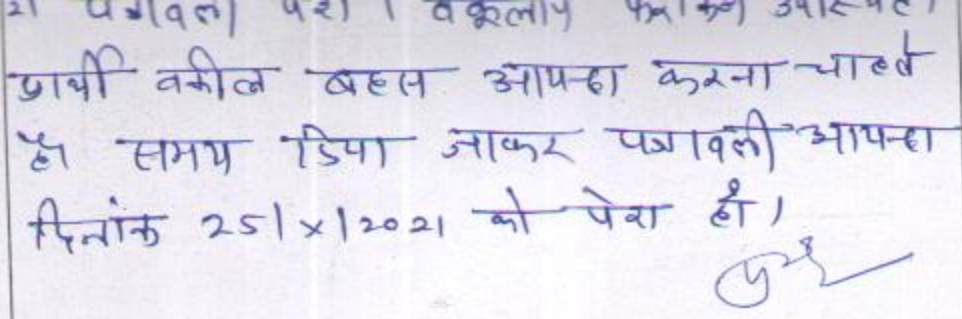 21 पत्रावली पेश । वकूलाय फरीकेन उपस्थित।
प्रार्थी वकील बहस आयन्दा करना चाहते
है। समय दिया जाकर पत्रावली आयन्दा
दिनांक 25/x/2021 को पेश हो।